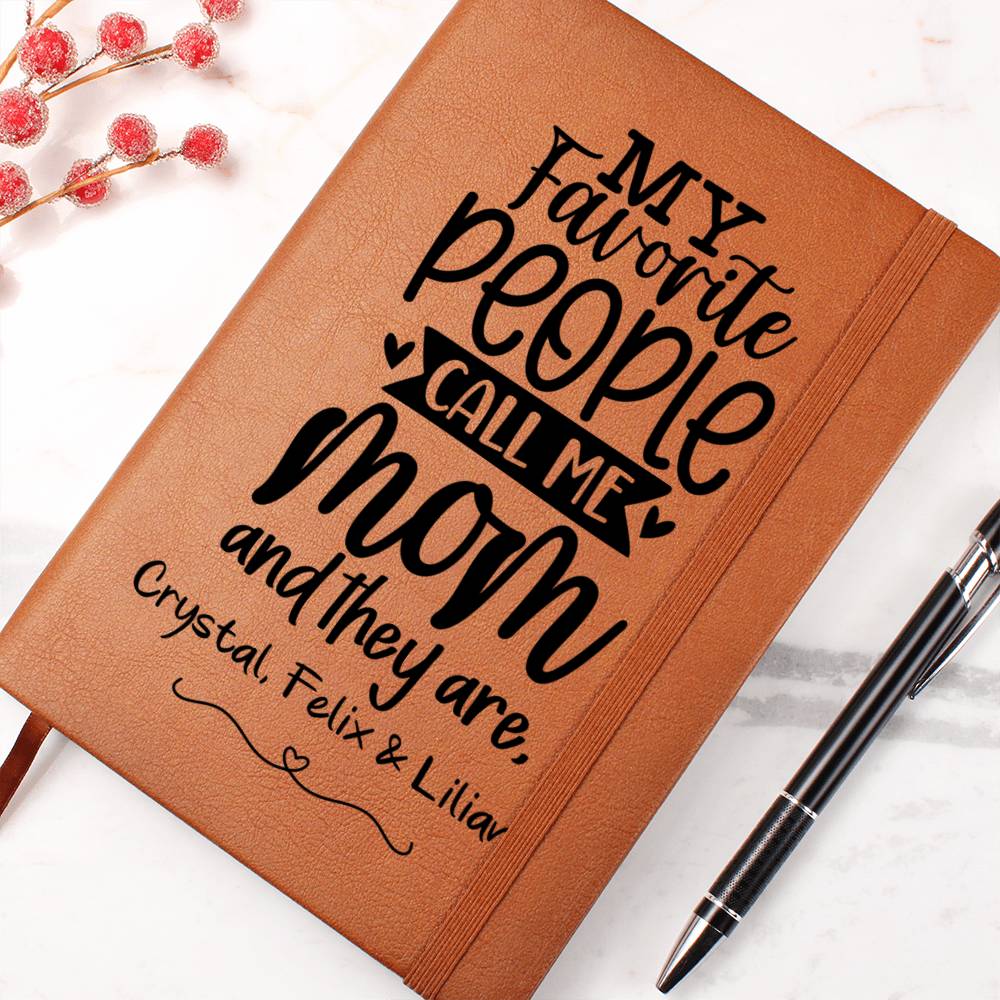 MY
Favorite
PEOPLE
CALL ME
Mom
and they are,
Crystal, Felix &